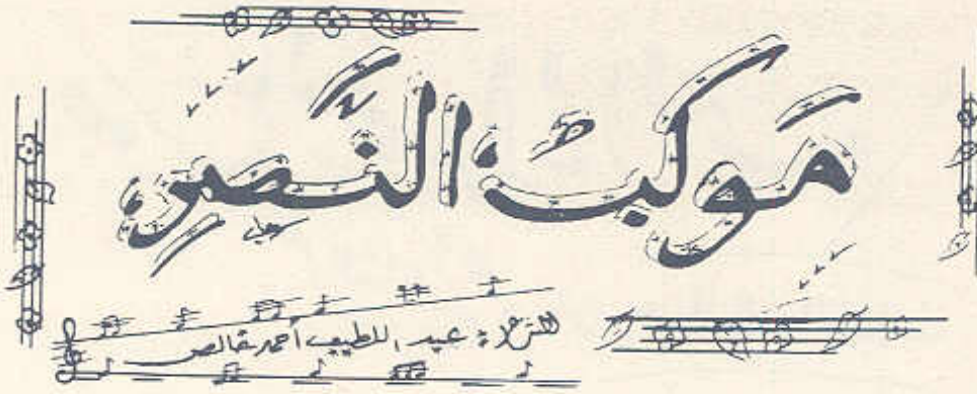 مَوكبُ النَّصرِ
للشاعر: عبد اللطيف أحمد خالص